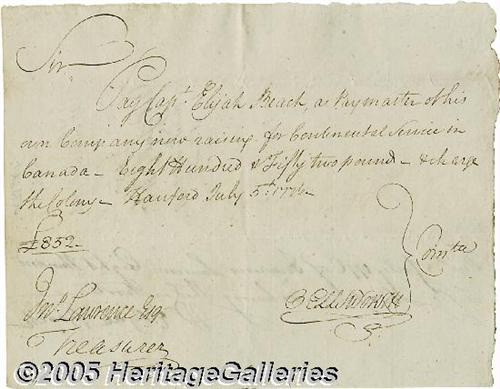 Sir
Pay Capt. Elijah Beach, as Paymaster of his
own Company now raising for Continental Service in
Canada – Eight Hundred & Fifty two pound – & charge
the Colony – Hartford July 5th 1776
£852 –
Comtee
Jno. Lawrence Esq
Treasurer
©2005 HeritageGalleries